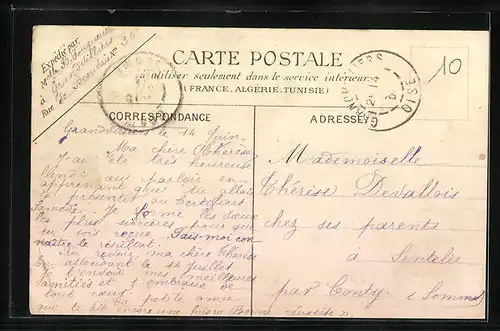 Expédié par
M
à Grandvilliers
Rue de Beauvais N° 30
CARTE POSTALE
à utiliser seulement dans le service intérieur
(FRANCE, ALGÉRIE, TUNISIE)
10
GRANDVILLIERS
OISE
CORRESPONDANCE
ADRESSE
Grandvilliers le 14 Juin
Ma chère Thérèse
J'ai été très heureuse
au parloir en
apprenant que tu allais
te présenter au Certificat
Samedi. Je forme les vœux
les plus sincères pour que
tu sois reçue. Fais-moi con
naître le résultat.
Au revoir, ma chère Thérèse
En attendant le 14 Juillet
je t'envoie mes meilleures
amitiés et t'embrasse de
tout cœur.
Ta petite amie
qui te dit encore une fois "Bonne réussite"
Mademoiselle
Thérèse Devallois
chez ses parents
à Sentelie
par Conty (Somme)